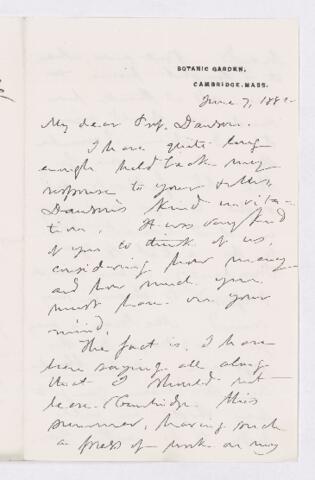 BOTANIC GARDEN,
CAMBRIDGE, MASS.
June 7, 188
My dear Prof. Dawson.
I have quite long
enough held back my
response to your &
Dawson's kind invita-
tion. It was very kind
of you to think of us,
considering how many
and how much you
must have on your
mind.
The fact is, I have
been saying all along
that I should not
leave Cambridge this
summer, having such
a press of work on my